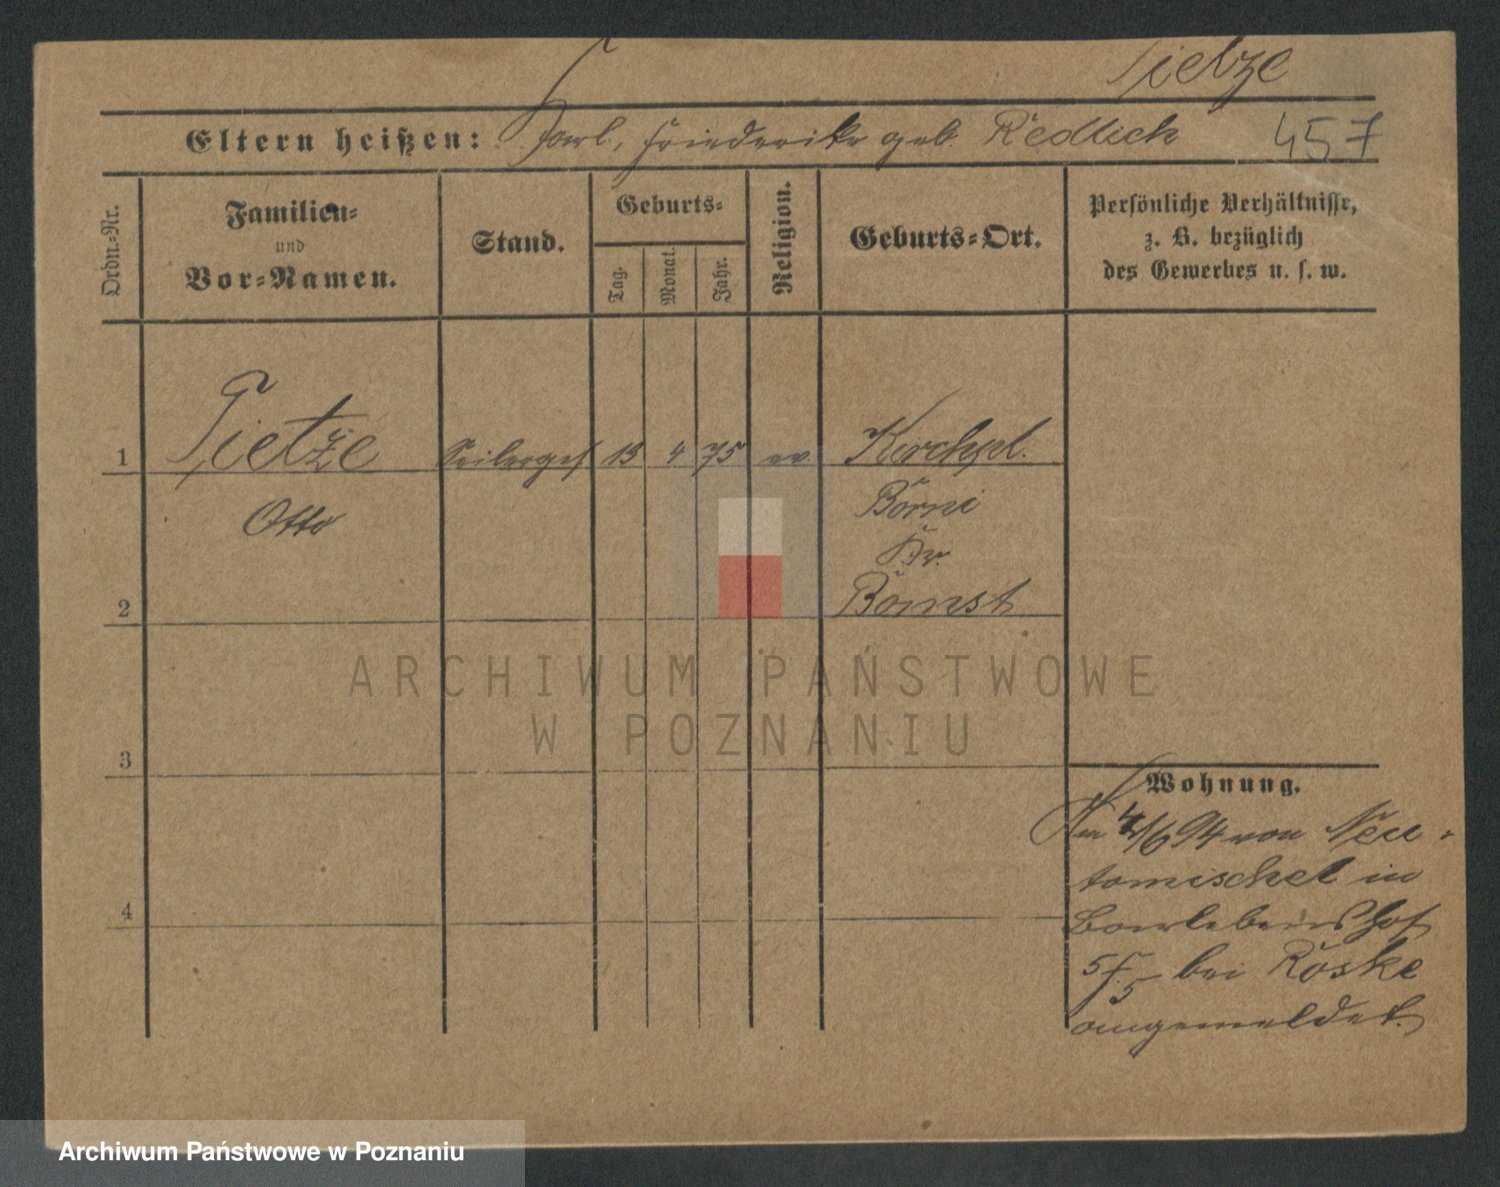 Tietze
Eltern heißen: Karl, Friederike geb. Redlich 457
Ordn.-Nr.
Familien-
und
Vor-Namen.
Stand.
Geburts-
Tag.
Monat.
Jahr.
Religion.
Geburts-Ort.
Persönliche Verhältnisse,
z. B. bezüglich
des Gewerbes u. s. w.
1 Tietze Seilerges 13 4 75 ev Kirchpl.
Otto Borni
Kr.
2 Bomst
ARCHIWUM PAŃSTWOWE
W POZNANIU
3
Wohnung.
Am 4/6 94 von Neu-
tomischel in
4
bei Röske
angemeldet.
Archiwum Państwowe w Poznaniu